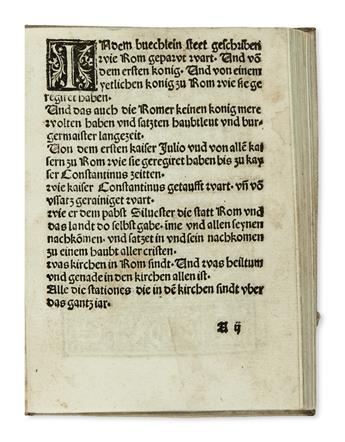 IN dem buechlein steet geschriben
wie Rom gepawt wart· Und vō
dem ersten konig· Und von einem
yetlichen konig zu Rom wie sie ge
regiret haben·
Und das auch die Romer keinen konig mere
wolten haben vnd satzten haubtleut vnd bur-
germaister langezeit·
Von dem ersten kaiser Julio vnd von allē kai
sern zu Rom wie sie geregiret haben bis zu kay
ser Constantinus zeitten·
wie kaiser Constantinus getaufft wart· vñ vō
vssatz gerainiget wart·
wie er dem pabst Siluester die statt Rom vnd
das landt do selbst gabe· ime vnd allen seynen
nachkōmen· vnd satzet in vnd sein nachkomen
zu einem haubt aller cristen·
was kirchen in Rom sindt· Und was heiltum
vnd genade in den kirchen allen ist·
Alle die stationes die in dē kirchen sindt vber
das gantz iar·
A ij